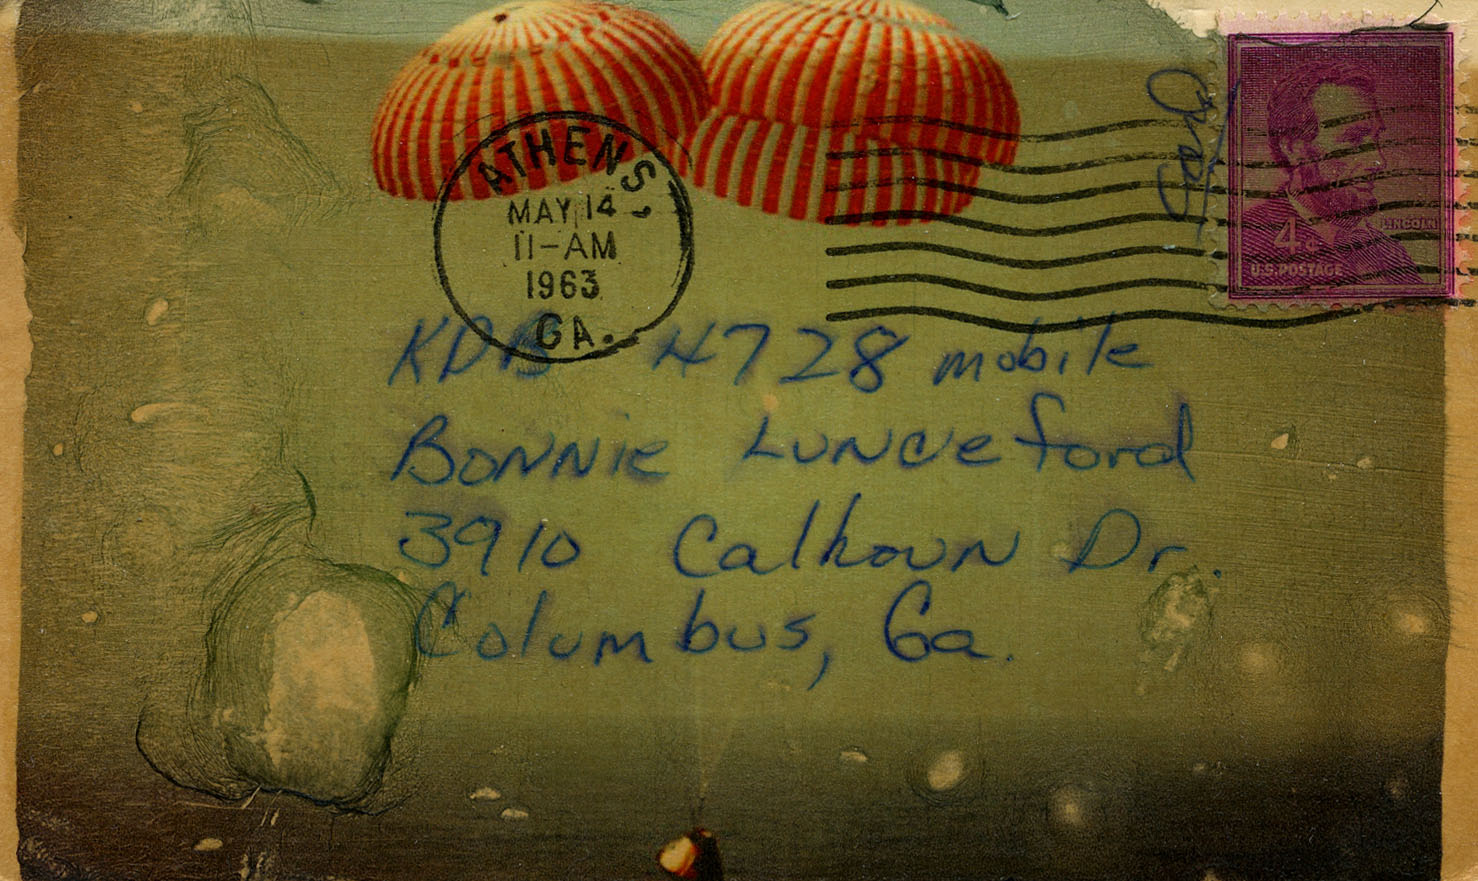 ATHENS,
MAY 14
11-AM
1963
GA.
LINCOLN
4¢
U.S. POSTAGE
KDB 4728 mobile
Bonnie Lunceford
3910 Calhoun Dr.
Columbus, Ga.